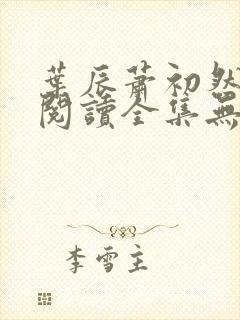 葉辰蕭初然
閱讀全集無
李雪主